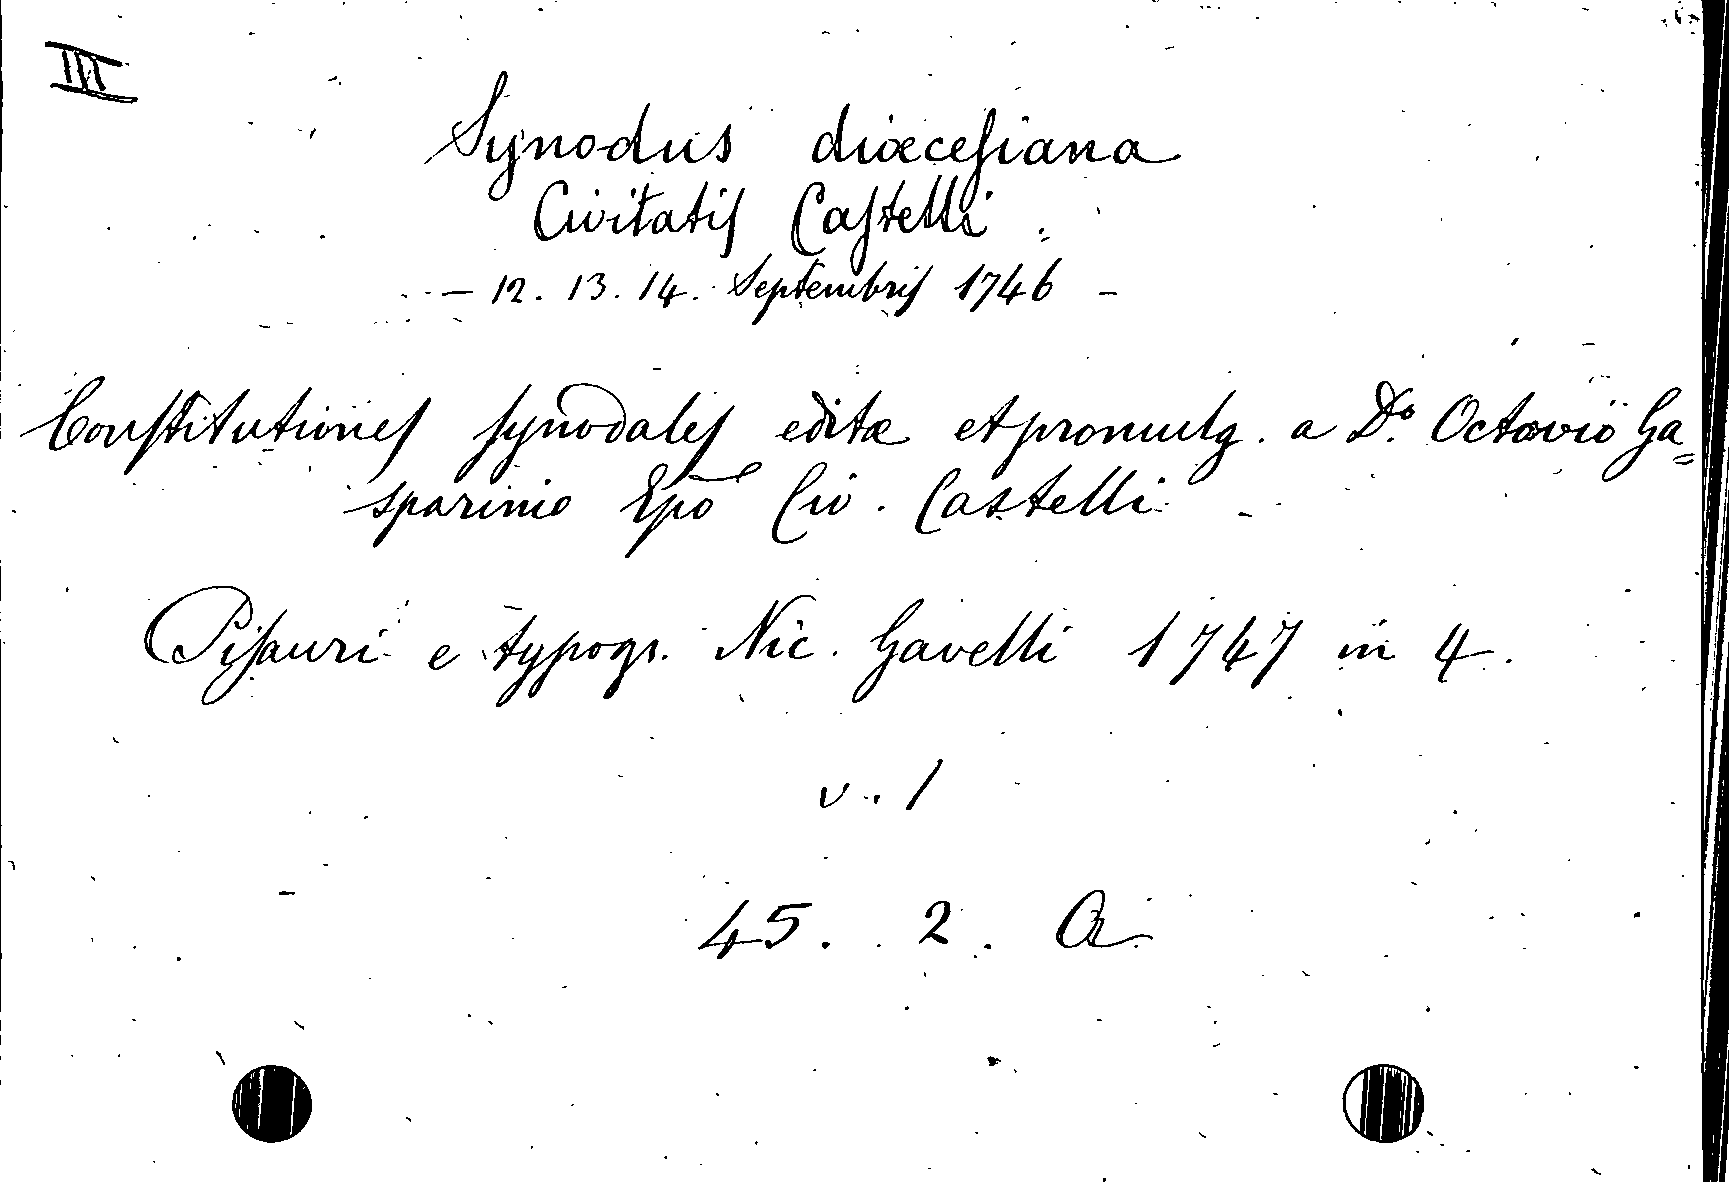 III
Synodus diœcesiana
Civitatis Castelli.
— 12. 13. 14. Septembris 1746 —
Constitutiones synodales editæ et promulg. a Dº. Octavio Ga=
sparinio Epō Civ. Castelli
Pisauri e typogr. Nic. Gavelli 1747 in 4.
v. 1
45. 2. A